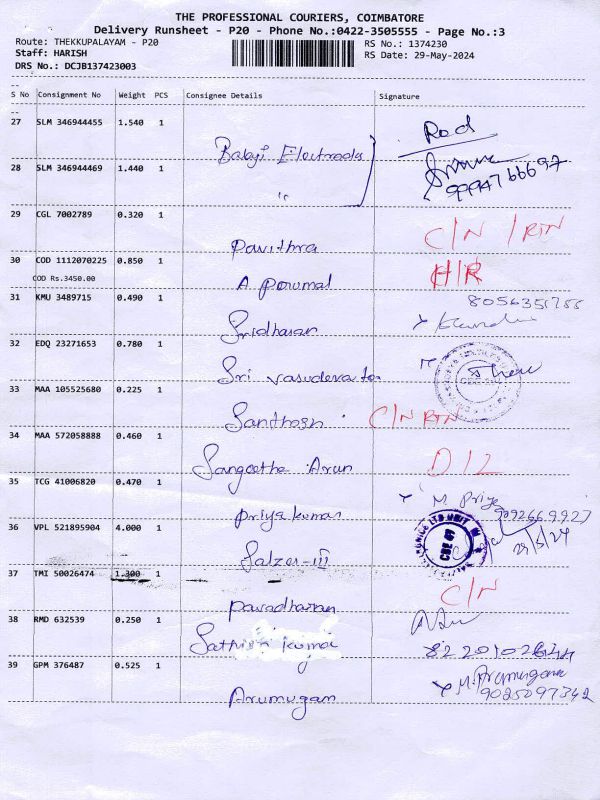 THE PROFESSIONAL COURIERS, COIMBATORE
Delivery Runsheet - P20 - Phone No.:0422-3505555 - Page No.:3
Route: THEKKUPALAYAM - P20
RS No.: 1374230
Staff: HARISH
RS Date: 29-May-2024
DRS No.: DCJB137423003
S No Consignment No Weight PCS Consignee Details Signature
27 SLM 346944455 1.540 1
Balaji Electrodes
28 SLM 346944469 1.440 1
9994766697
29 CGL 7002789 0.320 1
Pavithra C/N / RTN
30 COD 1112070225 0.850 1
COD Rs.3450.00
A Perumal H/R
31 KMU 3489715 0.490 1
8056351755
Sridharan
32 EDQ 23271653 0.780 1
Sri Vasudeva
33 MAA 105525680 0.225 1
Santhosh C/N RTN
34 MAA 572058888 0.460 1
Sangeetha Arun D/L
35 TCG 41006820 0.470 1
M Priya
Priya kumar 9092669927
36 VPL 521895904 4.000 1
29/5/24
Salzer-III
37 TMI 50026474 1.300 1
C/N
Pavadharan
38 RMD 632539 0.250 1
Sathish kumar
39 GPM 376487 0.525 1
M. Arumugam
Arumugam 9025097342